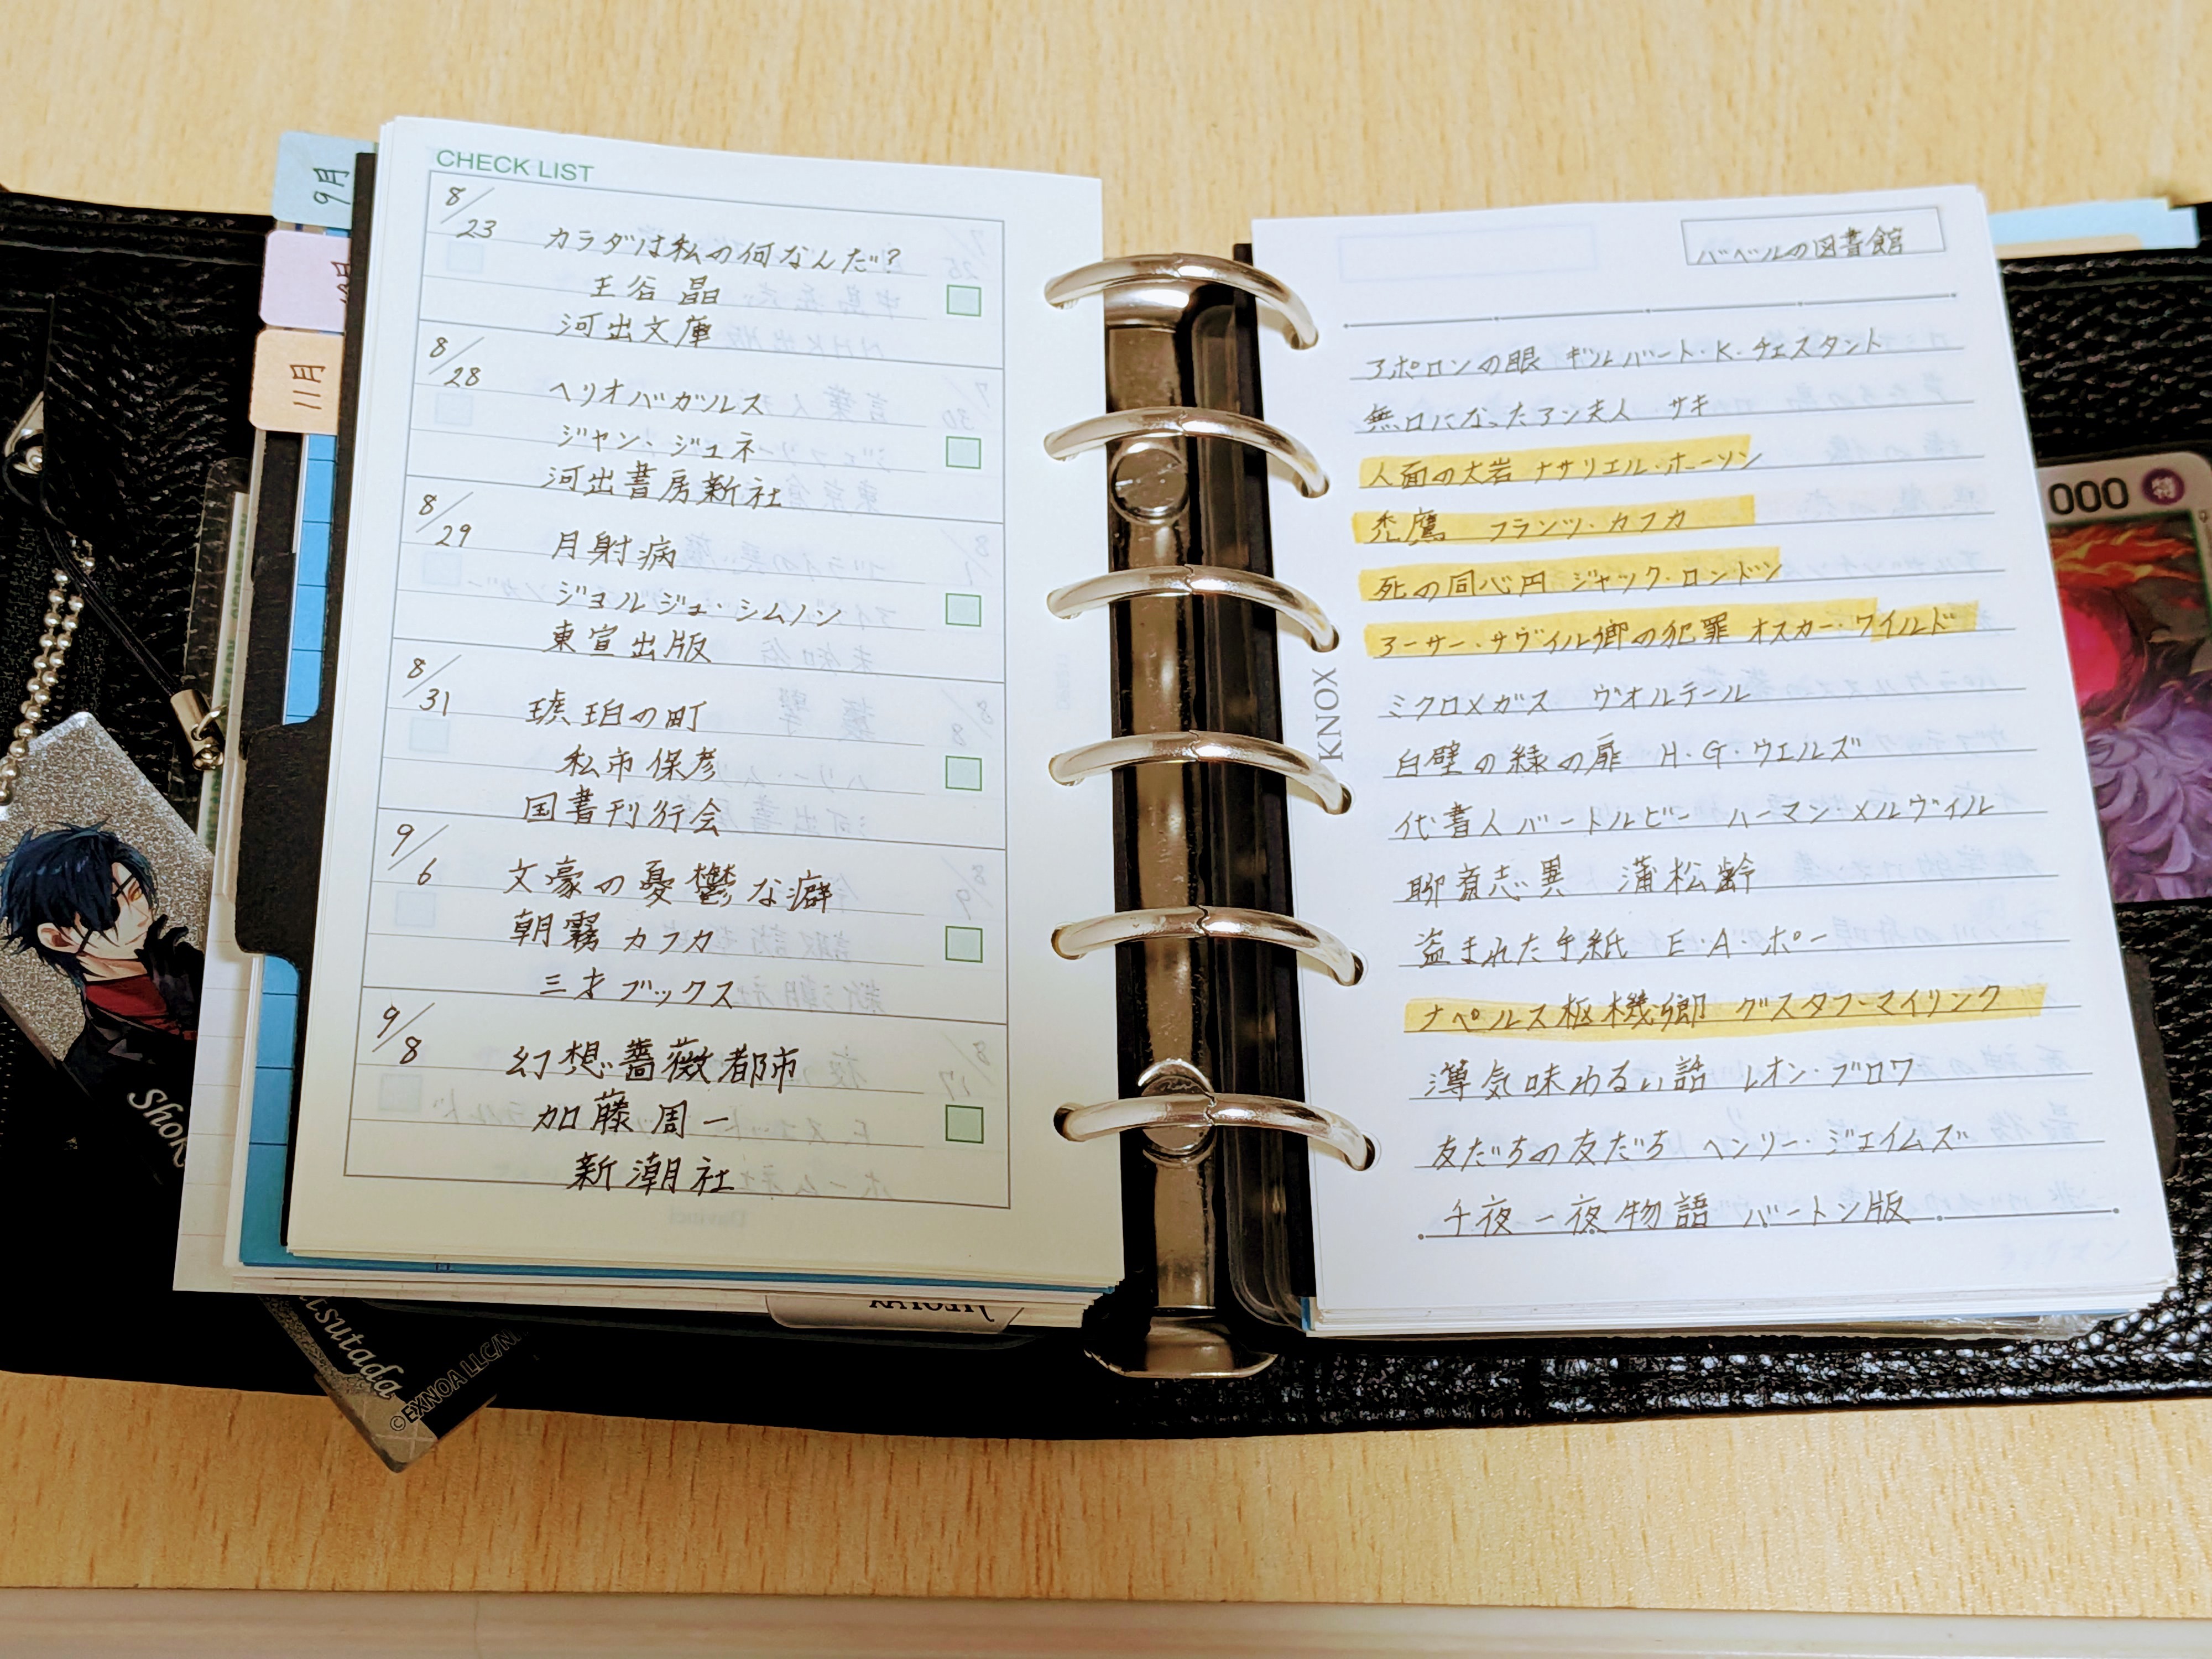 CHECK LIST
8/23
カラダは私の何なんだ?
王谷 晶
河出文庫
8/28
ヘリオガバルス
ジャン・ジュネ
河出書房新社
8/29
月射病
ジョルジュ・シムノン
東宣出版
8/31
琥珀の町
私市保彦
国書刊行会
9/6
文豪の憂鬱な癖
朝霧 カフカ
三才ブックス
9/8
幻想薔薇都市
加藤周一
新潮社
9月
11月
バベルの図書館
アポロンの眼 ギルバート・K・チェスタント
無口になったアン夫人 サキ
人面の大岩 ナサリエル・ホーソン
禿鷹 フランツ・カフカ
死の同心円 ジャック・ロンドン
アーサー・サヴィル卿の犯罪 オスカー・ワイルド
ミクロメガス ヴォルテール
白壁の緑の扉 H・G・ウエルズ
代書人バートルビー ハーマン・メルヴィル
聊斎志異 蒲松齢
盗まれた手紙 E・A・ポー
ナペルス枢機卿 グスタフ・マイリンク
薄気味わるい話 レオン・ブロワ
友だちの友だち ヘンリー・ジェイムズ
千夜一夜物語 バートン版
KNOX
000 特
Shok
©EXNOA LLC/NI